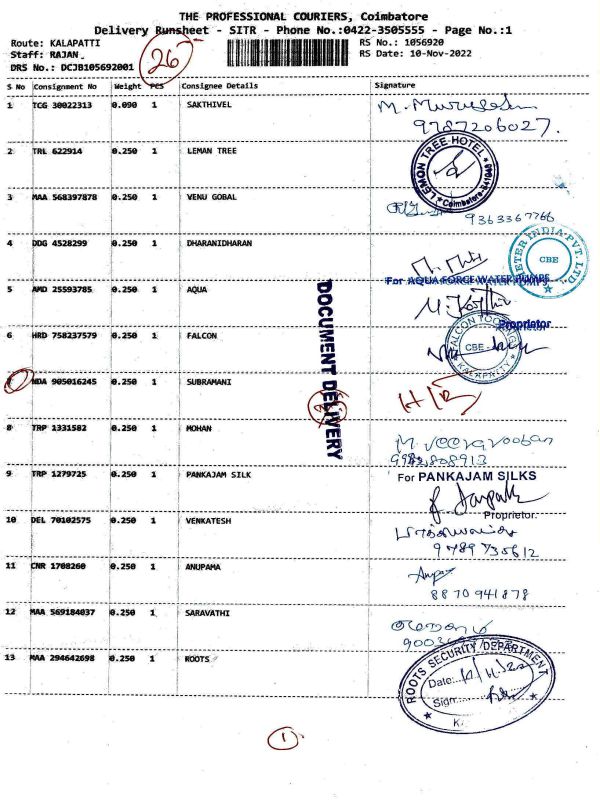 THE PROFESSIONAL COURIERS, Coimbatore
Delivery Runsheet - SITR - Phone No.:0422-3505555 - Page No.:1
Route: KALAPATTI
RS No.: 1056920
Staff: RAJAN
26
RS Date: 10-Nov-2022
DRS No.: DCJB105692001
S No Consignment No Weight PCS Consignee Details Signature
1 TCG 30022313 0.090 1 SAKTHIVEL
9787206027.
2 TRL 622914 0.250 1 LEMAN TREE
LEMON TREE HOTEL
Coimbatore-641048
3 MAA 568397878 0.250 1 VENU GOBAL
9363367766
4 DDG 4528299 0.250 1 DHARANIDHARAN
METER INDIA PVT. LTD.
CBE
For AQUA FORCE WATER PUMPS
5 AMD 25593785 0.250 1 AQUA
Proprietor
6 HRD 758237579 0.250 1 FALCON
FALCON TOOLINGS
CBE
KALAPATTY
NDA 905016245 0.250 1 SUBRAMANI
DOCUMENT DELIVERY
8 TRP 1331582 0.250 1 MOHAN
9 TRP 1279725 0.250 1 PANKAJAM SILK
For PANKAJAM SILKS
Proprietor.
10 DEL 70102575 0.250 1 VENKATESH
9789735612
11 CNR 1708260 0.250 1 ANUPAMA
8870941878
12 MAA 569184037 0.250 1 SARAVATHI
13 MAA 294642698 0.250 1 ROOTS
ROOTS SECURITY DEPARTMENT
Date:
Sign:
1